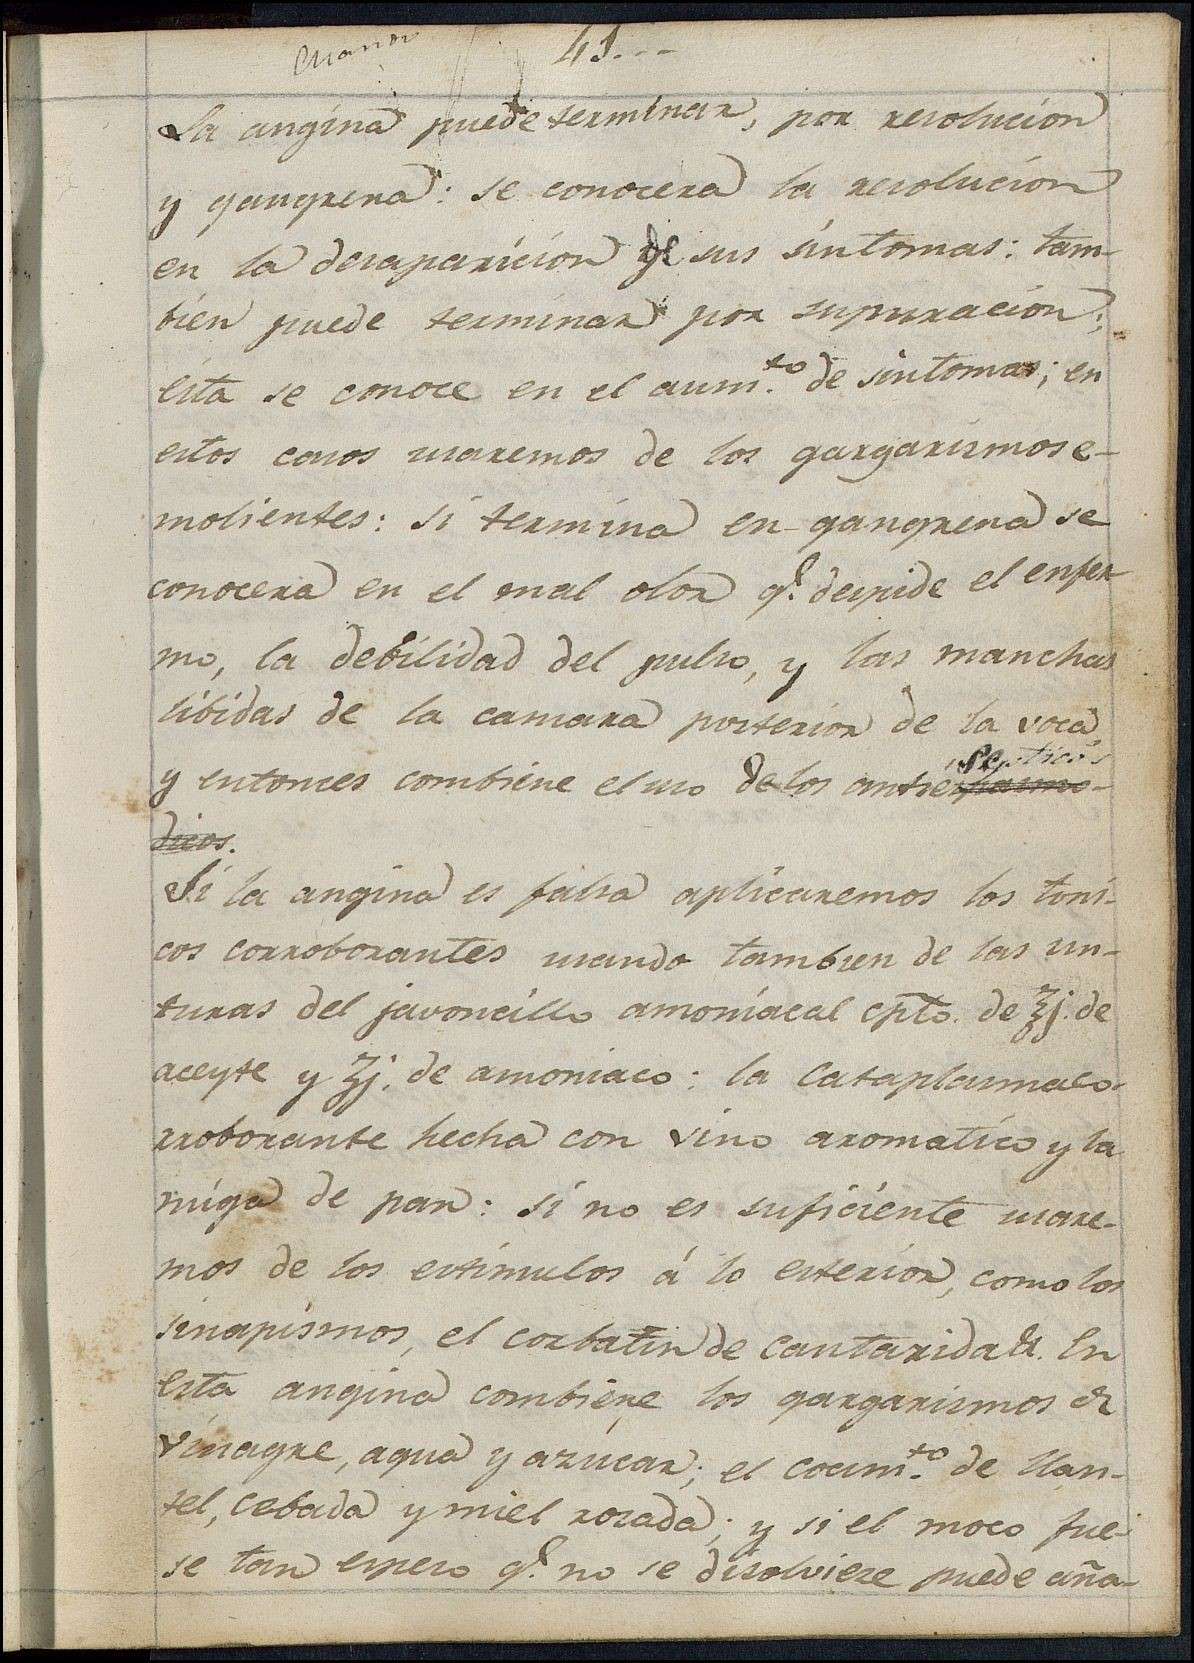 41.--
La angina puede terminar, por resolucion
y gangrena: se conocera la resolucion
en la desaparicion de sus sintomas: tam-
bien puede terminar por supuracion;
esta se conoce en el aum.to de sintomas; en
estos casos usaremos de los gargarismos e-
molientes: si termina en gangrena se
conocera en el mal olor q.e despide el enfer
mo, la debilidad del pulso, y las manchas
libidas de la camara posterior de la voca,
septicos
y entonces combiene el uso de los antiespasmo-
dicos.
Si la angina es falsa aplicaremos los toni-
cos corroborantes usando tambien de las un-
turas del javoncillo amoniacal cpto. de ℥j. de
aceyte y ʒj. de amoniaco: la Cataplasma co-
rroborante hecha con vino aromatico y la
miga de pan: si no es suficiente usare-
mos de los estimulos á lo esterior, como los
sinapismos, el corbatin de cantarida &. En
esta angina combiene los gargarismos de
vinagre, agua y azucar; el cocim.to de llan-
tel, cebada y miel rosada; y si el moco fue-
se tan espeso q.e no se disolviese puede aña-